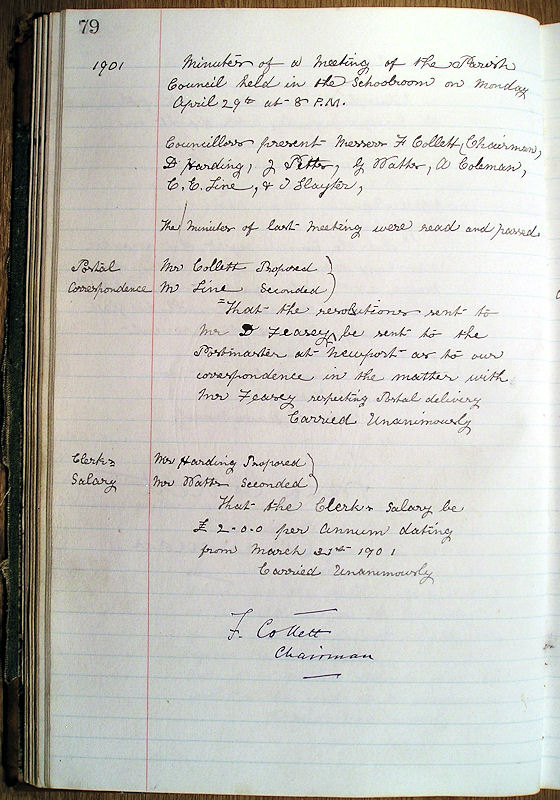 79
1901 Minutes of a Meeting of the Parish
Council held in the Schoolroom on Monday
April 29th at 8 P.M.
Councillors present Messrs F Collett, Chairman,
D Harding, J Pitter, G Watts, A Coleman,
C. C. Line, & J Slayter,
The Minutes of last Meeting were read and passed
Postal Mr Collett Proposed
Correspondence Mr Line Seconded
That the resolutions sent to
Mr D Feasey be sent to the
Postmaster at Newport as to our
correspondence in the matter with
Mr Feasey respecting Postal delivery
Carried Unanimously
Clerks Mr Harding Proposed
Salary Mr Watts Seconded
That the Clerks Salary be
£ 2-0-0 per Annum dating
from March 31st 1901
Carried Unanimously
F. Collett
Chairman